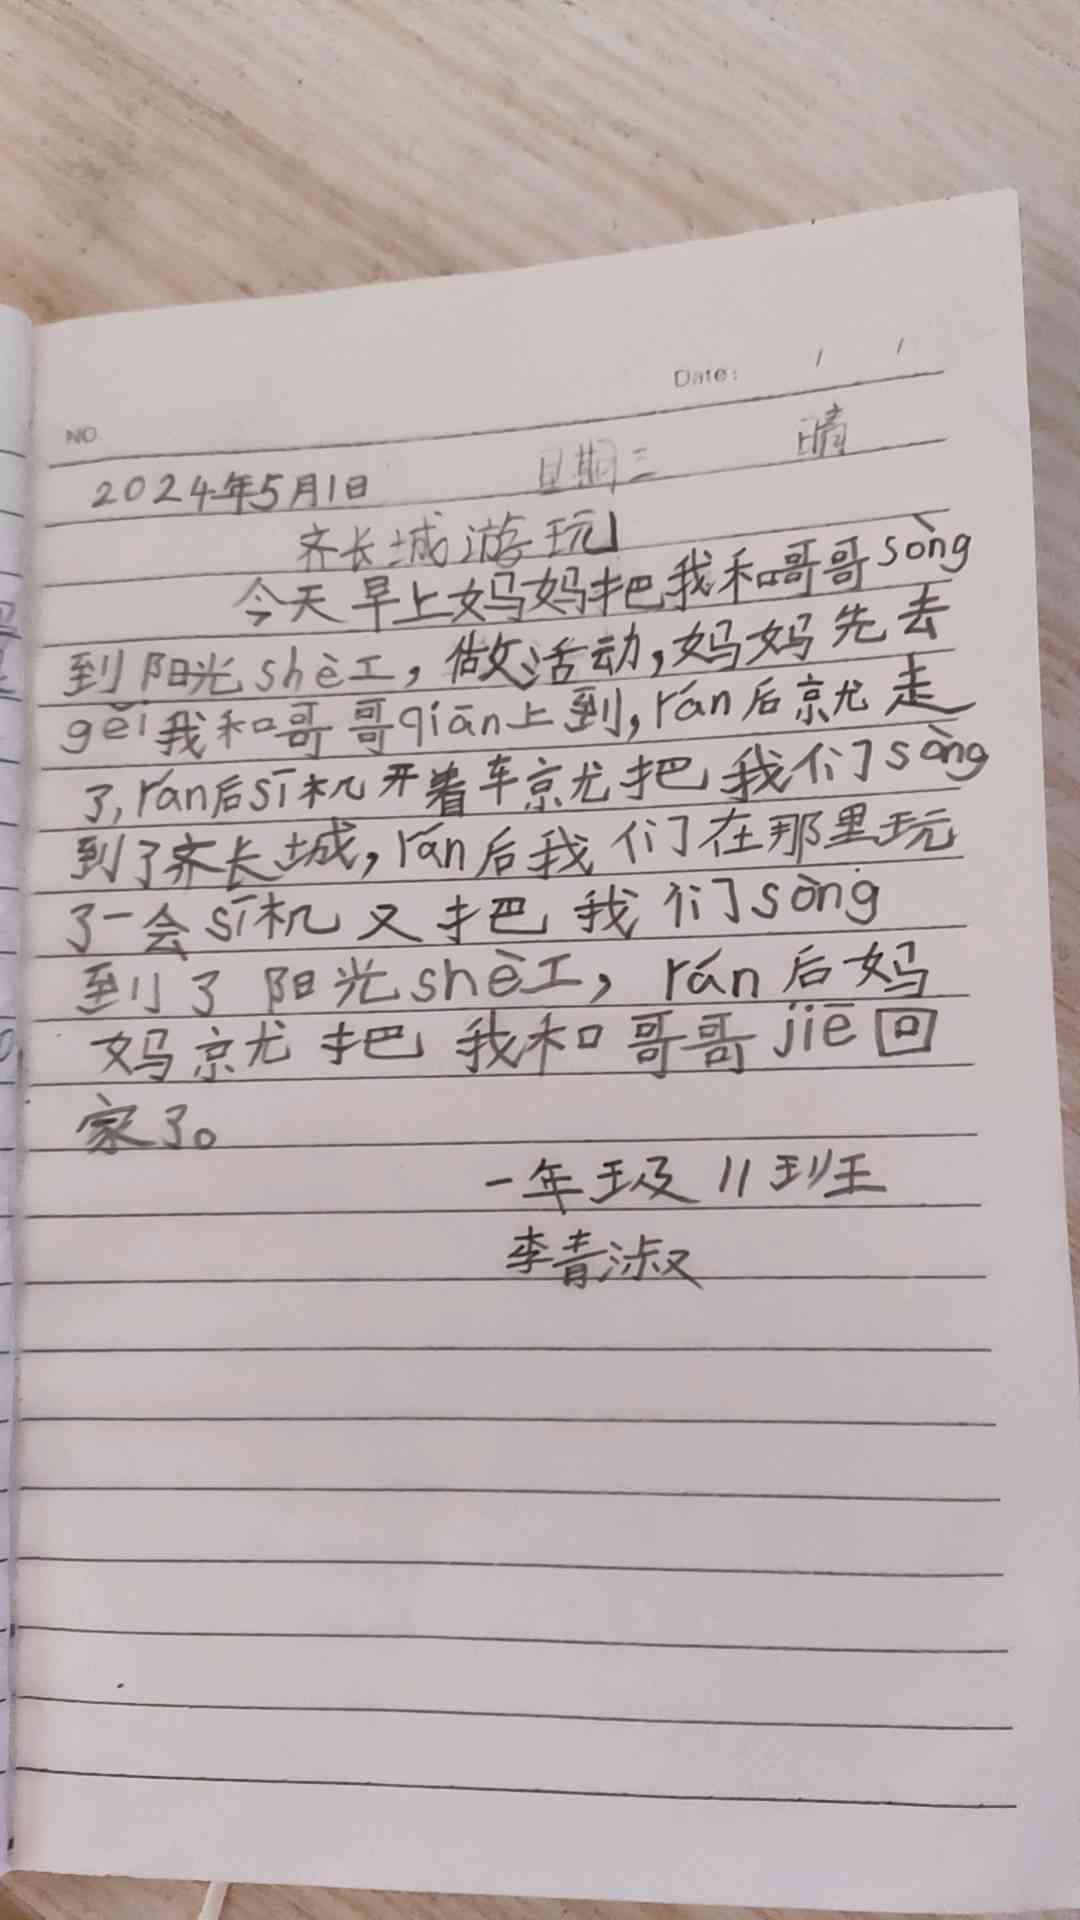 Date: / /
NO.
2024年5月1日 日期三 晴
齐长城游玩
今天早上妈妈把我和哥哥sòng
到阳光shè工，做活动，妈妈先去
gěi我和哥哥qiān上到，rán后就走
了，rán后sī机开着车就把我们sòng
到了齐长城，rán后我们在那里玩
了一会sī机又把我们sòng
到了阳光shè工，rán后妈
妈就把我和哥哥jiē回
家了。
一年级11班
李青淑